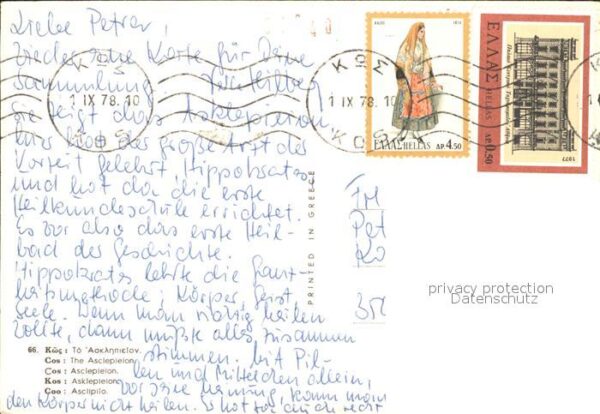 Liebe Petra,
wieder eine Karte für Deine
Sammlung
Sie zeigt das Asklepieion
hier hat der große Arzt der
Vorzeit gelehrt, Hippokrates
und hat da die erste
Heilkundeschule errichtet.
Es war also das erste Heil-
bad der Geschichte.
Hippokrates lehrte die Ganz-
heitsmethode; Körper, Geist
Seele. Wenn man richtig heilen
wollte, dann mußte alles zusammen
stimmen. Mit Pil-
len und Mittelchen allein,
kann man
den Körper nicht heilen. Er hat ja auch recht
66. Κῶς : Τὸ Ἀσκληπιεῖον.
Cos : The Asclepieion.
Cos : Asclepieion.
Kos : Asklepieion.
Coo : Asclipiio.
PRINTED IN GREECE
ΚΩΣ
1 IX 78. 10
KOS
ΚΩΣ
1 IX 78. 10
KOS
1974
ΕΛΛΑΣ HELLAS ΔΡ. 4.50
ΕΛΛΑΣ HELLAS ΔΡ. 0.50
1977
Pet
Ko
privacy protection
Datenschutz